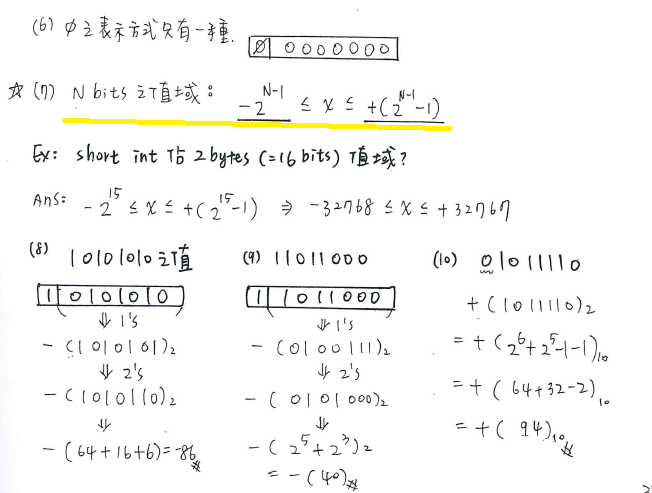 (6) ∅之表示方式只有一種. 0 0000000
☆ (7) N bits 之值域: -2^{N-1} ≤ x ≤ +(2^{N-1}-1)
Ex: short int 佔 2 bytes (=16 bits) 值域?
Ans: -2^{15} ≤ x ≤ +(2^{15}-1) ⇒ -32768 ≤ x ≤ +32767
(8) 10101010之值
1 0101010
⇓ 1's
- (1010101)₂
⇓ 2's
- (1010110)₂
⇓
- (64+16+6)=-86
(9) 11011000
1 1011000
⇓ 1's
- (0100111)₂
⇓ 2's
- (0101000)₂
⇓
- (2^5+2^3)₂
= -(40)
(10) 01011110
+(1011110)₂
= +(2^6+2^5-1-1)₁₀
= +(64+32-2)₁₀
= +(94)₁₀